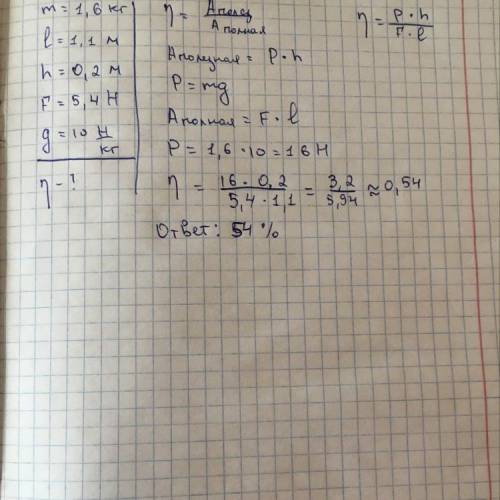 m = 1,6 кг
l = 1,1 м
h = 0,2 м
F = 5,4 Н
g = 10 Н/кг
η - ?
η = Aполез / Aполная
η = P·h / F·l
Aполезная = P·h
P = mg
Aполная = F·l
P = 1,6·10 = 16 Н
η = 16·0,2 / 5,4·1,1 = 3,2 / 5,94 ≈ 0,54
Ответ: 54 %